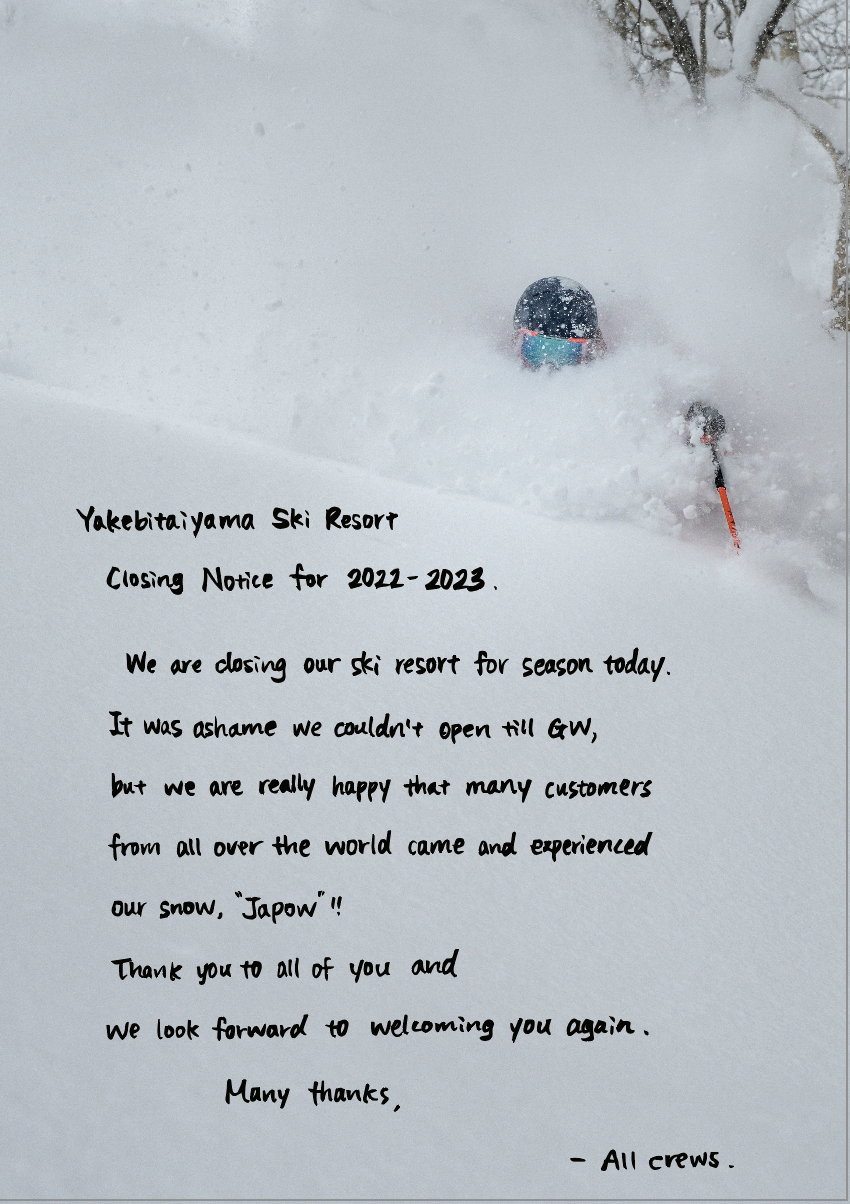 Yakebitaiyama Ski Resort
Closing Notice for 2022-2023.
We are closing our ski resort for season today.
It was ashame we couldn't open till GW,
but we are really happy that many customers
from all over the world came and experienced
our snow, "Japow"!!
Thank you to all of you and
we look forward to welcoming you again.
Many thanks,
- All crews.